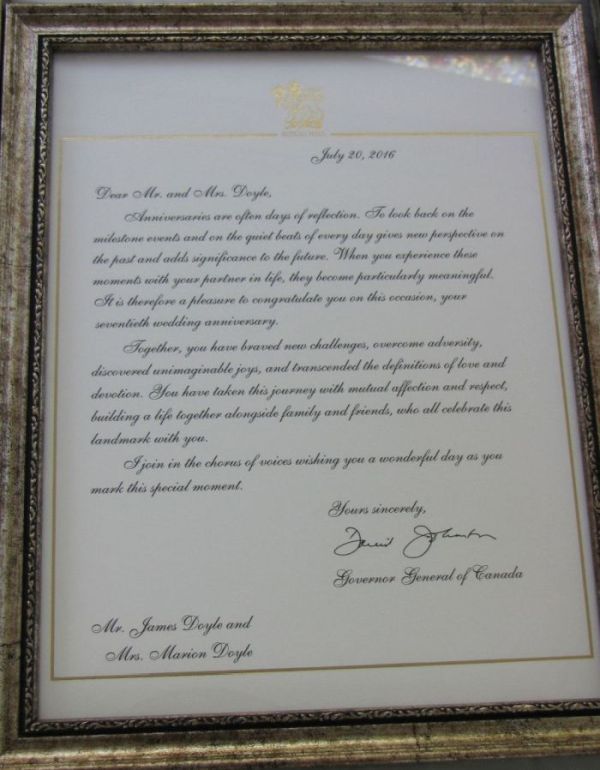 July 20, 2016
Dear Mr. and Mrs. Doyle,
Anniversaries are often days of reflection. To look back on the
milestone events and on the quiet beats of every day gives new perspective on
the past and adds significance to the future. When you experience these
moments with your partner in life, they become particularly meaningful.
It is therefore a pleasure to congratulate you on this occasion, your
seventieth wedding anniversary.
Together, you have braved new challenges, overcome adversity,
discovered unimaginable joys, and transcended the definitions of love and
devotion. You have taken this journey with mutual affection and respect,
building a life together alongside family and friends, who all celebrate this
landmark with you.
I join in the chorus of voices wishing you a wonderful day as you
mark this special moment.
Yours sincerely,
David Johnston
Governor General of Canada
Mr. James Doyle and
Mrs. Marion Doyle